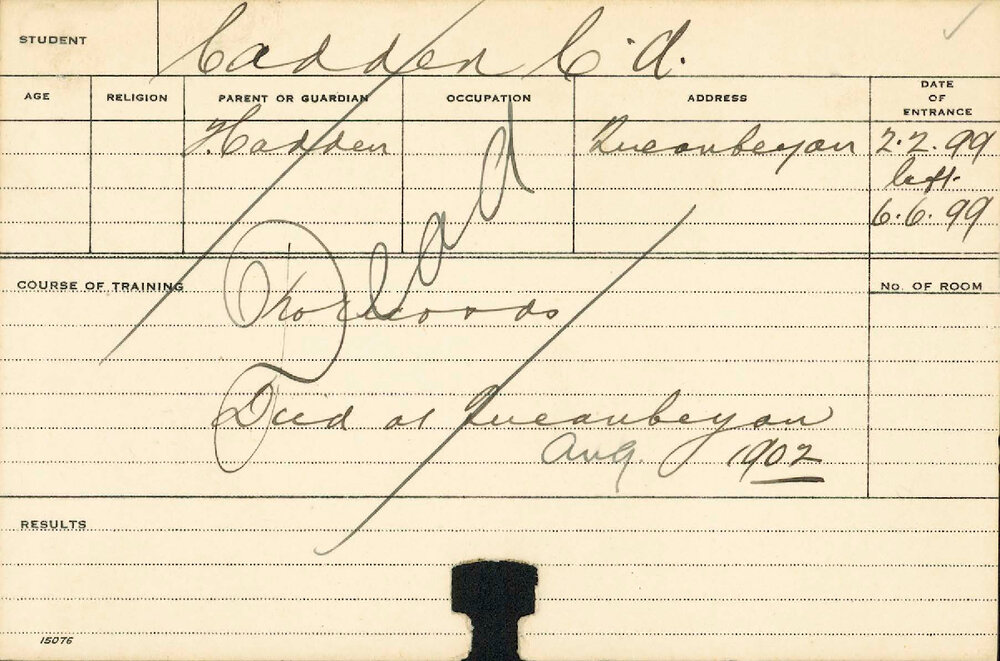 STUDENT Cadden C. A.
AGE RELIGION PARENT OR GUARDIAN OCCUPATION ADDRESS DATE OF ENTRANCE
Queanbeyan 2.2.99
left
6.6.99
Dead
COURSE OF TRAINING No. OF ROOM
Died at Queanbeyan
Aug. 1902
RESULTS
15076